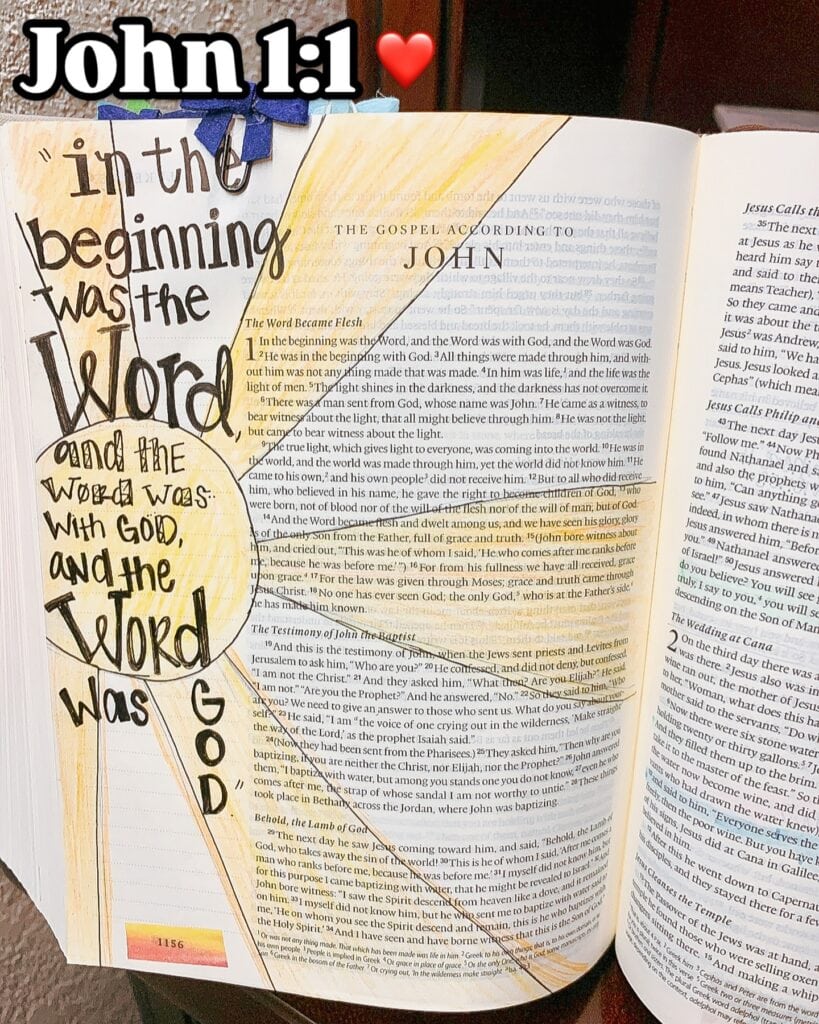 John 1:1 ❤️
"in the
beginning
was the
Word,
and the
Word was
with GOD,
and the
WORD
was
GOD"
THE GOSPEL ACCORDING TO
JOHN
The Word Became Flesh
1 In the beginning was the Word, and the Word was with God, and the Word was God.
2 He was in the beginning with God. 3 All things were made through him, and with-
out him was not any thing made that was made. 4 In him was life,1 and the life was the
light of men. 5 The light shines in the darkness, and the darkness has not overcome it.
6 There was a man sent from God, whose name was John. 7 He came as a witness, to
bear witness about the light, that all might believe through him. 8 He was not the light,
but came to bear witness about the light.
9 The true light, which gives light to everyone, was coming into the world. 10 He was in
the world, and the world was made through him, yet the world did not know him. 11 He
came to his own,2 and his own people3 did not receive him. 12 But to all who did receive
him, who believed in his name, he gave the right to become children of God, 13 who
were born, not of blood nor of the will of the flesh nor of the will of man, but of God.
14 And the Word became flesh and dwelt among us, and we have seen his glory, glory
as of the only Son from the Father, full of grace and truth. 15 (John bore witness about
him, and cried out, "This was he of whom I said, 'He who comes after me ranks before
me, because he was before me.'") 16 For from his fullness we have all received, grace
upon grace.4 17 For the law was given through Moses; grace and truth came through
Jesus Christ. 18 No one has ever seen God; the only God,5 who is at the Father's side,6
he has made him known.
The Testimony of John the Baptist
19 And this is the testimony of John, when the Jews sent priests and Levites from
Jerusalem to ask him, "Who are you?" 20 He confessed, and did not deny, but confessed,
"I am not the Christ." 21 And they asked him, "What then? Are you Elijah?" He said,
"I am not." "Are you the Prophet?" And he answered, "No." 22 So they said to him, "Who
are you? We need to give an answer to those who sent us. What do you say about your-
self?" 23 He said, "I am the voice of one crying out in the wilderness, 'Make straight
the way of the Lord,' as the prophet Isaiah said."
24 (Now they had been sent from the Pharisees.) 25 They asked him, "Then why are you
baptizing, if you are neither the Christ, nor Elijah, nor the Prophet?" 26 John answered
them, "I baptize with water, but among you stands one you do not know, 27 even he who
comes after me, the strap of whose sandal I am not worthy to untie." 28 These things
took place in Bethany across the Jordan, where John was baptizing.
Behold, the Lamb of God
29 The next day he saw Jesus coming toward him, and said, "Behold, the Lamb of
God, who takes away the sin of the world! 30 This is he of whom I said, 'After me comes a
man who ranks before me, because he was before me.' 31 I myself did not know him, but
for this purpose I came baptizing with water, that he might be revealed to Israel." 32 And
John bore witness: "I saw the Spirit descend from heaven like a dove, and it remained
on him. 33 I myself did not know him, but he who sent me to baptize with water said to
me, 'He on whom you see the Spirit descend and remain, this is he who baptizes with
the Holy Spirit.' 34 And I have seen and have borne witness that this is the Son of God."
1156
Jesus Calls th
35 The next
at Jesus as he
heard him say
and said to the
means Teacher),
So they came and
it was about the t
Jesus2 was Andrew,
said to him, "We ha
Jesus. Jesus looked a
Cephas" (which mea
Jesus Calls Philip an
43 The next day Jes
"Follow me." 44 Now Ph
found Nathanael and sa
and also the prophets w
to him, "Can anything g
see." 47 Jesus saw Nathana
indeed, in whom there is n
Jesus answered him, "Befor
you." 49 Nathanael answere
of Israel!" 50 Jesus answered
do you believe? You will see
truly, I say to you,4 you will se
descending on the Son of Man
The Wedding at Cana
2 On the third day there was a
was there. 2 Jesus also was in
wine ran out, the mother of Jesus
to her, "Woman, what does this ha
mother said to the servants, "Do w
6 Now there were six stone water
holding twenty or thirty gallons.
And they filled them up to the brim.
take it to the master of the feast." So t
the water now become wine, and did
ants who had drawn the water knew)
and said to him, "Everyone serves the
freely, then the poor wine. But you have k
of his signs, Jesus did at Cana in Galilee,
12 After this he went down to Capernau
disciples, and they stayed there for a few
Jesus Cleanses the Temple
13 The Passover of the Jews was at hand, a
he found those who were selling oxen
sitting there. 15 And making a whip